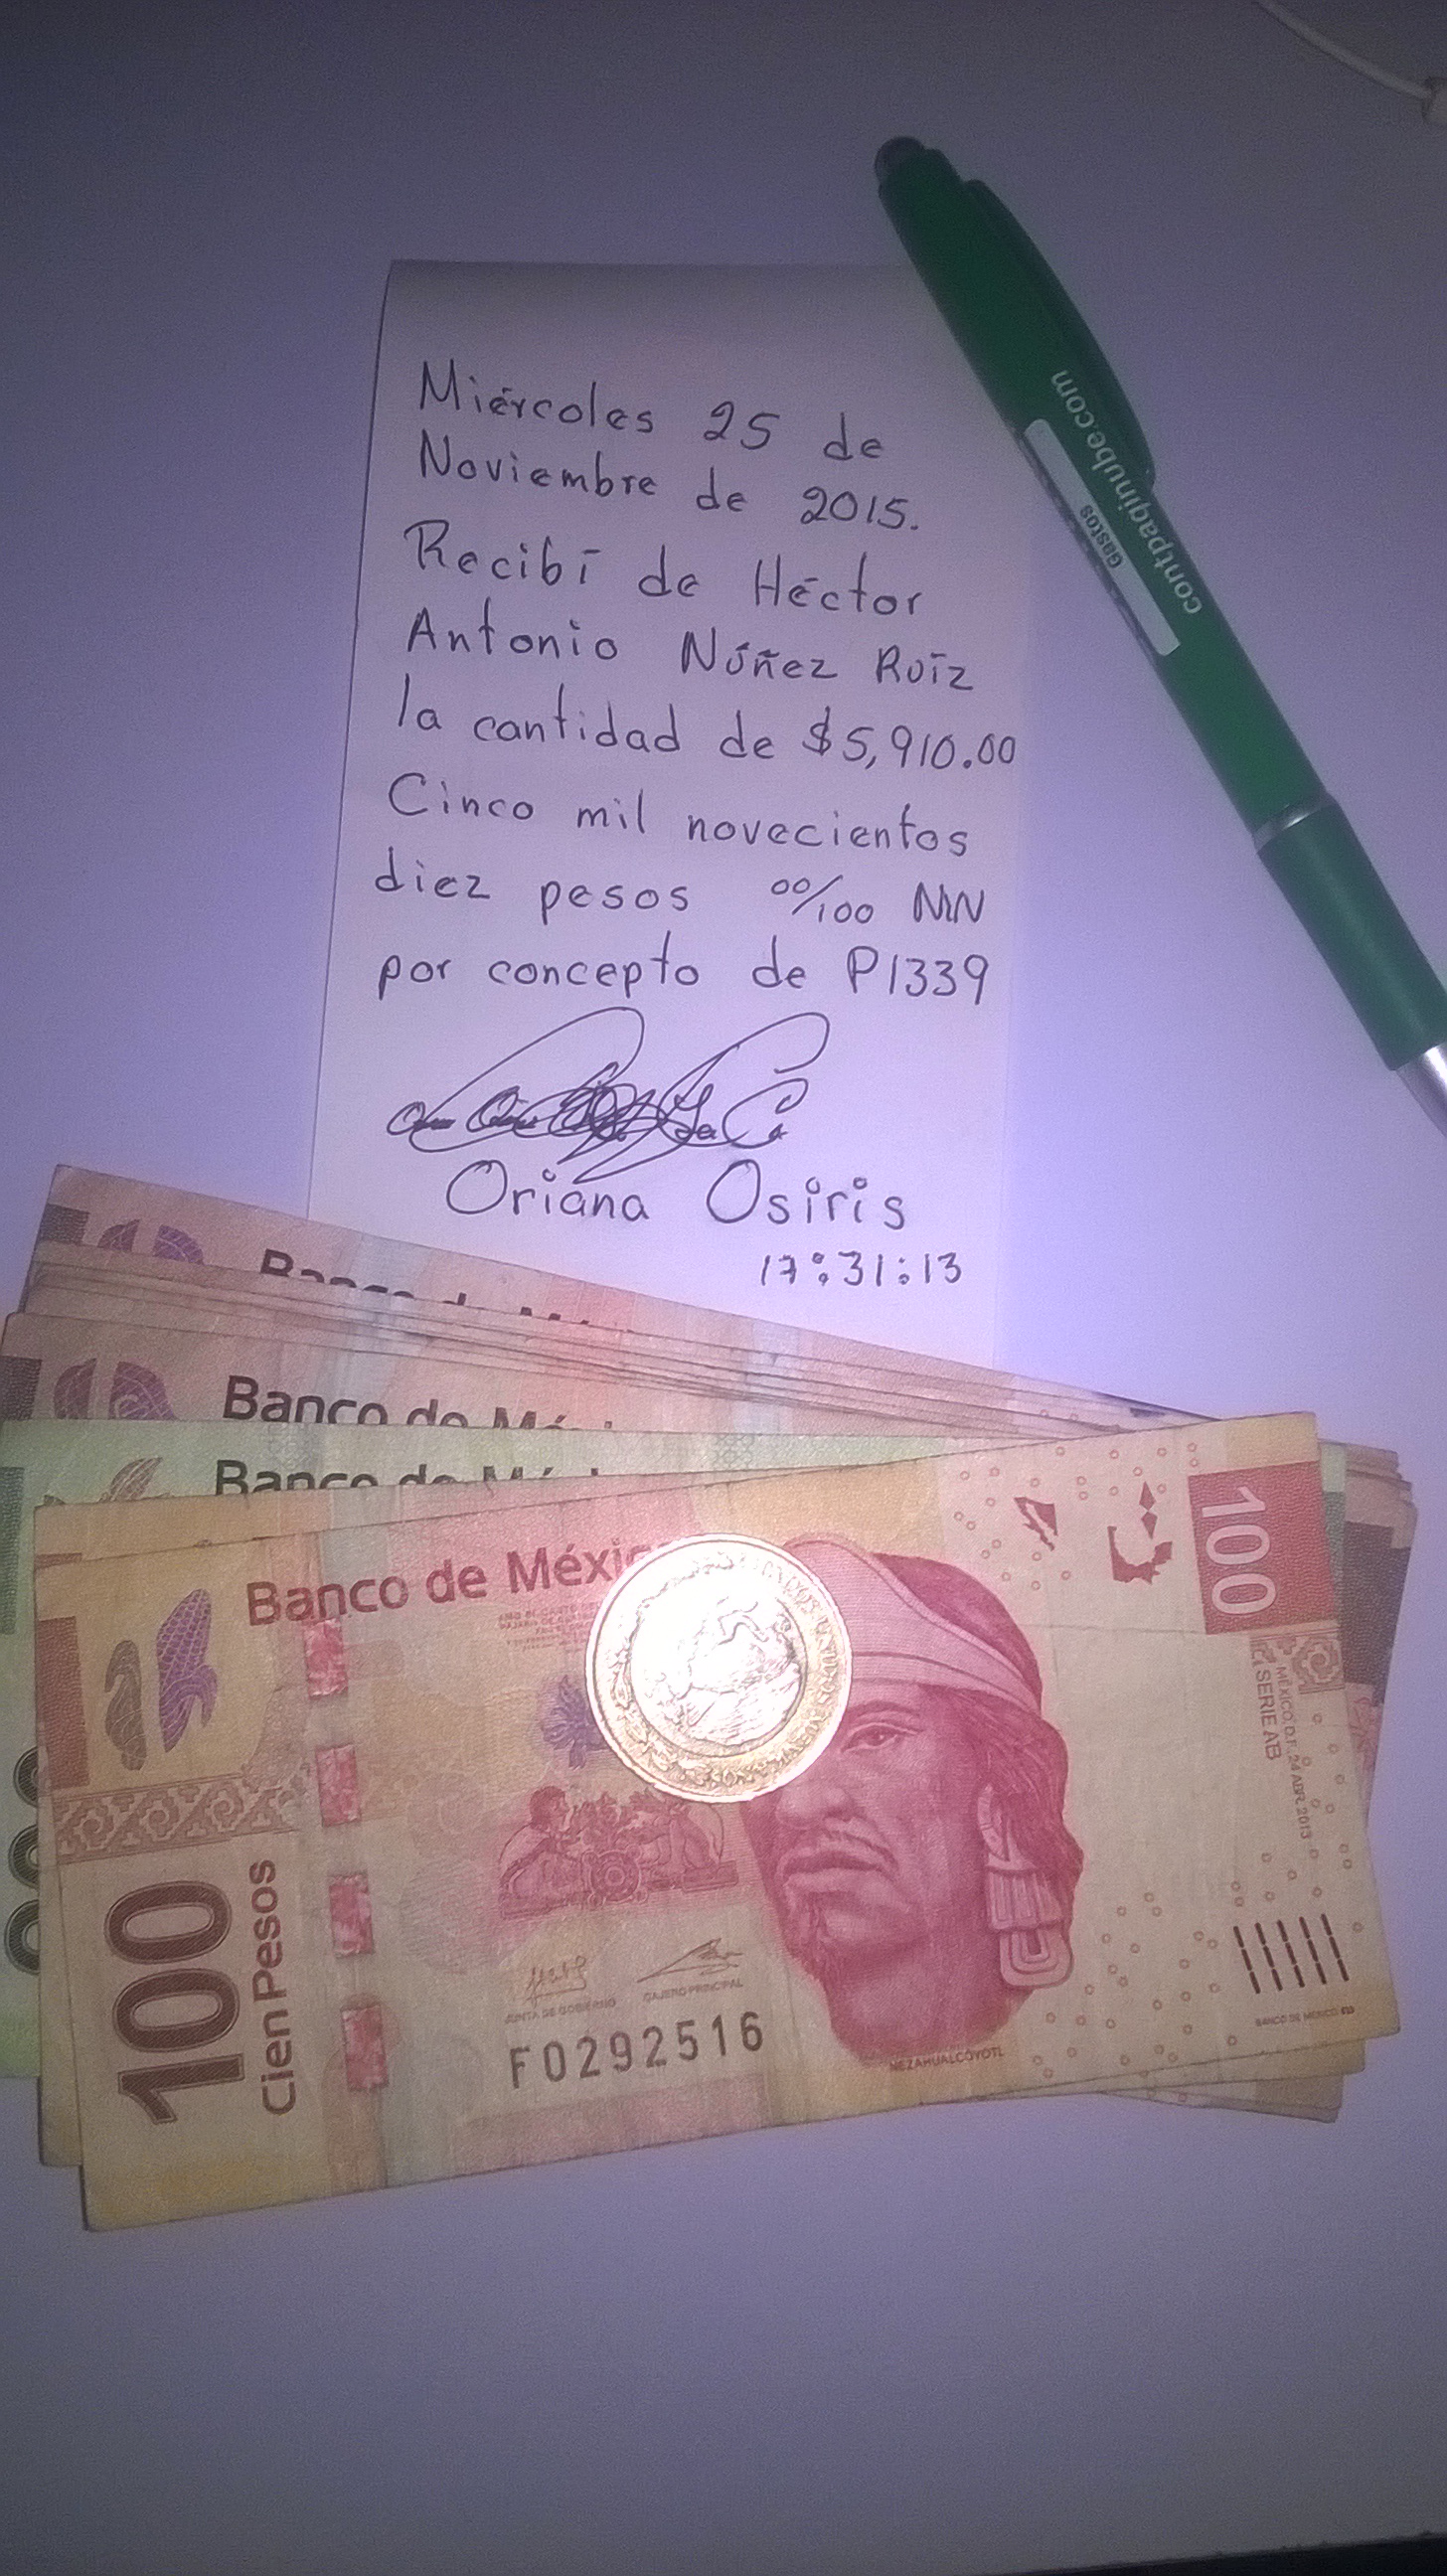 Miércoles 25 de
Noviembre de 2015.
Recibí de Héctor
Antonio Núñez Ruíz
la cantidad de $5,910.00
Cinco mil novecientos
diez pesos 00/100 MN
por concepto de P1339
Oriana Osiris
17:31:13
contpaqinube.com
Gastos
Banco de México
Banco de
Banco de
Banco de
100
100
Cien Pesos
MÉXICO, D.F. 24 ABR. 2013
SERIE AB
JUNTA DE GOBIERNO
CAJERO PRINCIPAL
F0292516
NEZAHUALCÓYOTL
BANCO DE MÉXICO